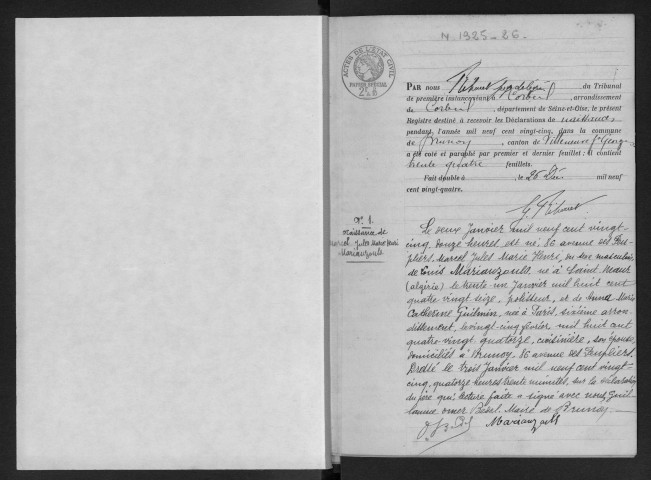 N 1925-26-
ACTES DE L'ÉTAT CIVIL
PAPIER SPÉCIAL
PAR nous Ribaut Juge délégué du Tribunal
de première instance séant à Corbeil, arrondissement
de Corbeil, département de Seine-et-Oise, le présent
Registre destiné à recevoir les Déclarations de naissances
pendant l'année mil neuf cent vingt-cinq, dans la commune
de Brunoy, canton de Villeneuve St Georges
a été coté et paraphé par premier et dernier feuillet: il contient
trente quatre feuillets.
Fait double à , le 26 Déc mil neuf
cent vingt-quatre.
N° 1.
Naissance de
Marcel Jules Marie Henri
Marianzoule
Le deux Janvier mil neuf cent vingt-
cinq, douze heures est né, 86 avenue des Peu-
pliers, Marcel Jules Marie Henri, du sexe masculin,
de Louis Marianzoule né à Saint
(Algérie) le trente-un Janvier mil huit cent
quatre vingt seize, polisseur, et de Marie
Catherine Guilmin, née à Paris, sixième arron-
dissement, le vingt-cinq février mil huit cent
quatre-vingt quatorze, cuisinière, son épouse
domiciliés à Brunoy, 86 avenue des Peupliers.
Dressé le trois Janvier mil neuf cent vingt-
cinq, quatorze heures trente minutes, sur la déclaration
du père qui, lecture faite a signé avec nous Guil-
laume Omer Maire de Brunoy